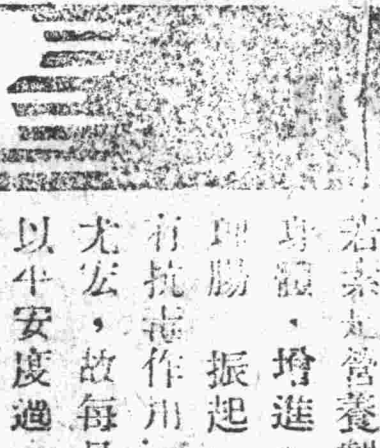 若素是營養
身體、增進
腸 振起
有抗毒作用
尤宏，故每
以平安度過